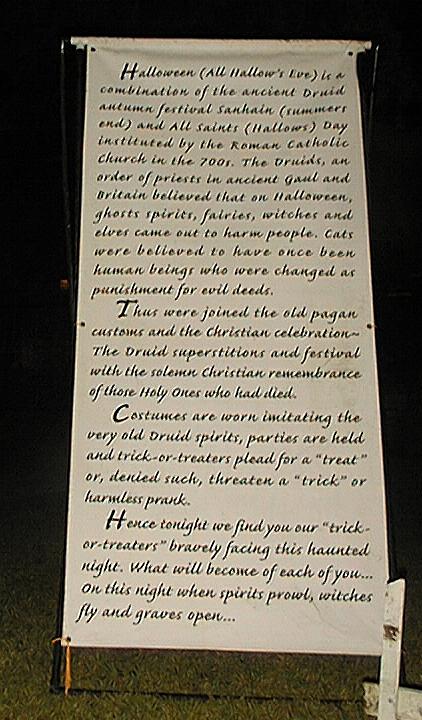 Halloween (All Hallow's Eve) is a
combination of the ancient Druid
autumn festival Sanhain (summers
end) and All Saints (Hallows) Day
instituted by the Roman Catholic
Church in the 700s. The Druids, an
order of priests in ancient Gaul and
Britain believed that on Halloween,
ghosts spirits, fairies, witches and
elves came out to harm people. Cats
were believed to have once been
human beings who were changed as
punishment for evil deeds.
Thus were joined the old pagan
customs and the Christian celebration~
The Druid superstitions and festival
with the solemn Christian remembrance
of those Holy Ones who had died.
Costumes are worn imitating the
very old Druid spirits, parties are held
and trick-or-treaters plead for a "treat"
or, denied such, threaten a "trick" or
harmless prank.
Hence tonight we find you our "trick-
or-treaters" bravely facing this haunted
night. What will become of each of you...
On this night when spirits prowl, witches
fly and graves open...